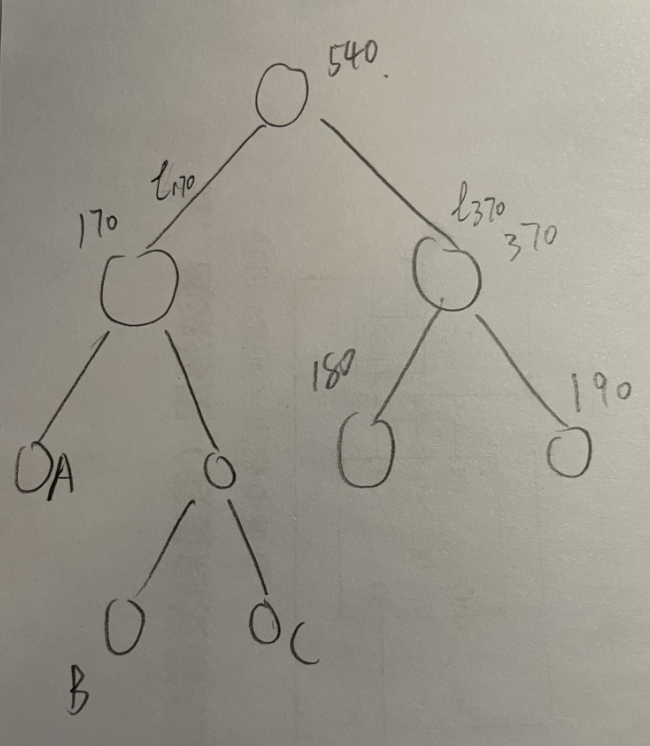 540.
t170
170
t370
370
180
190
A
B
C